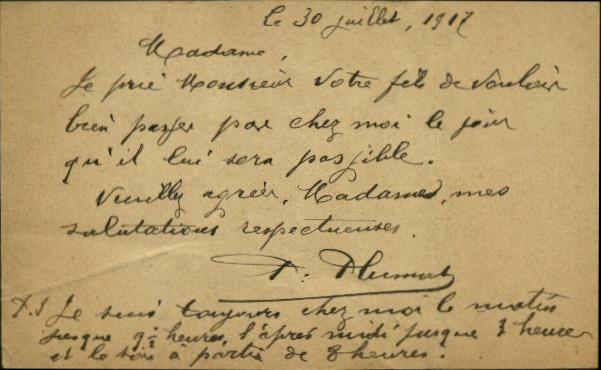 le 30 juillet, 1917
Madame,
Je prie Monsieur votre fils de vouloir
bien passer par chez moi le jour
qu'il lui sera possible.
Veuillez agréer, Madame, mes
salutations respectueuses.
P.S Je suis toujours chez moi le matin
jusque 9½ heures, l'après midi jusque 3 heures
et le soir à partir de 8 heures.